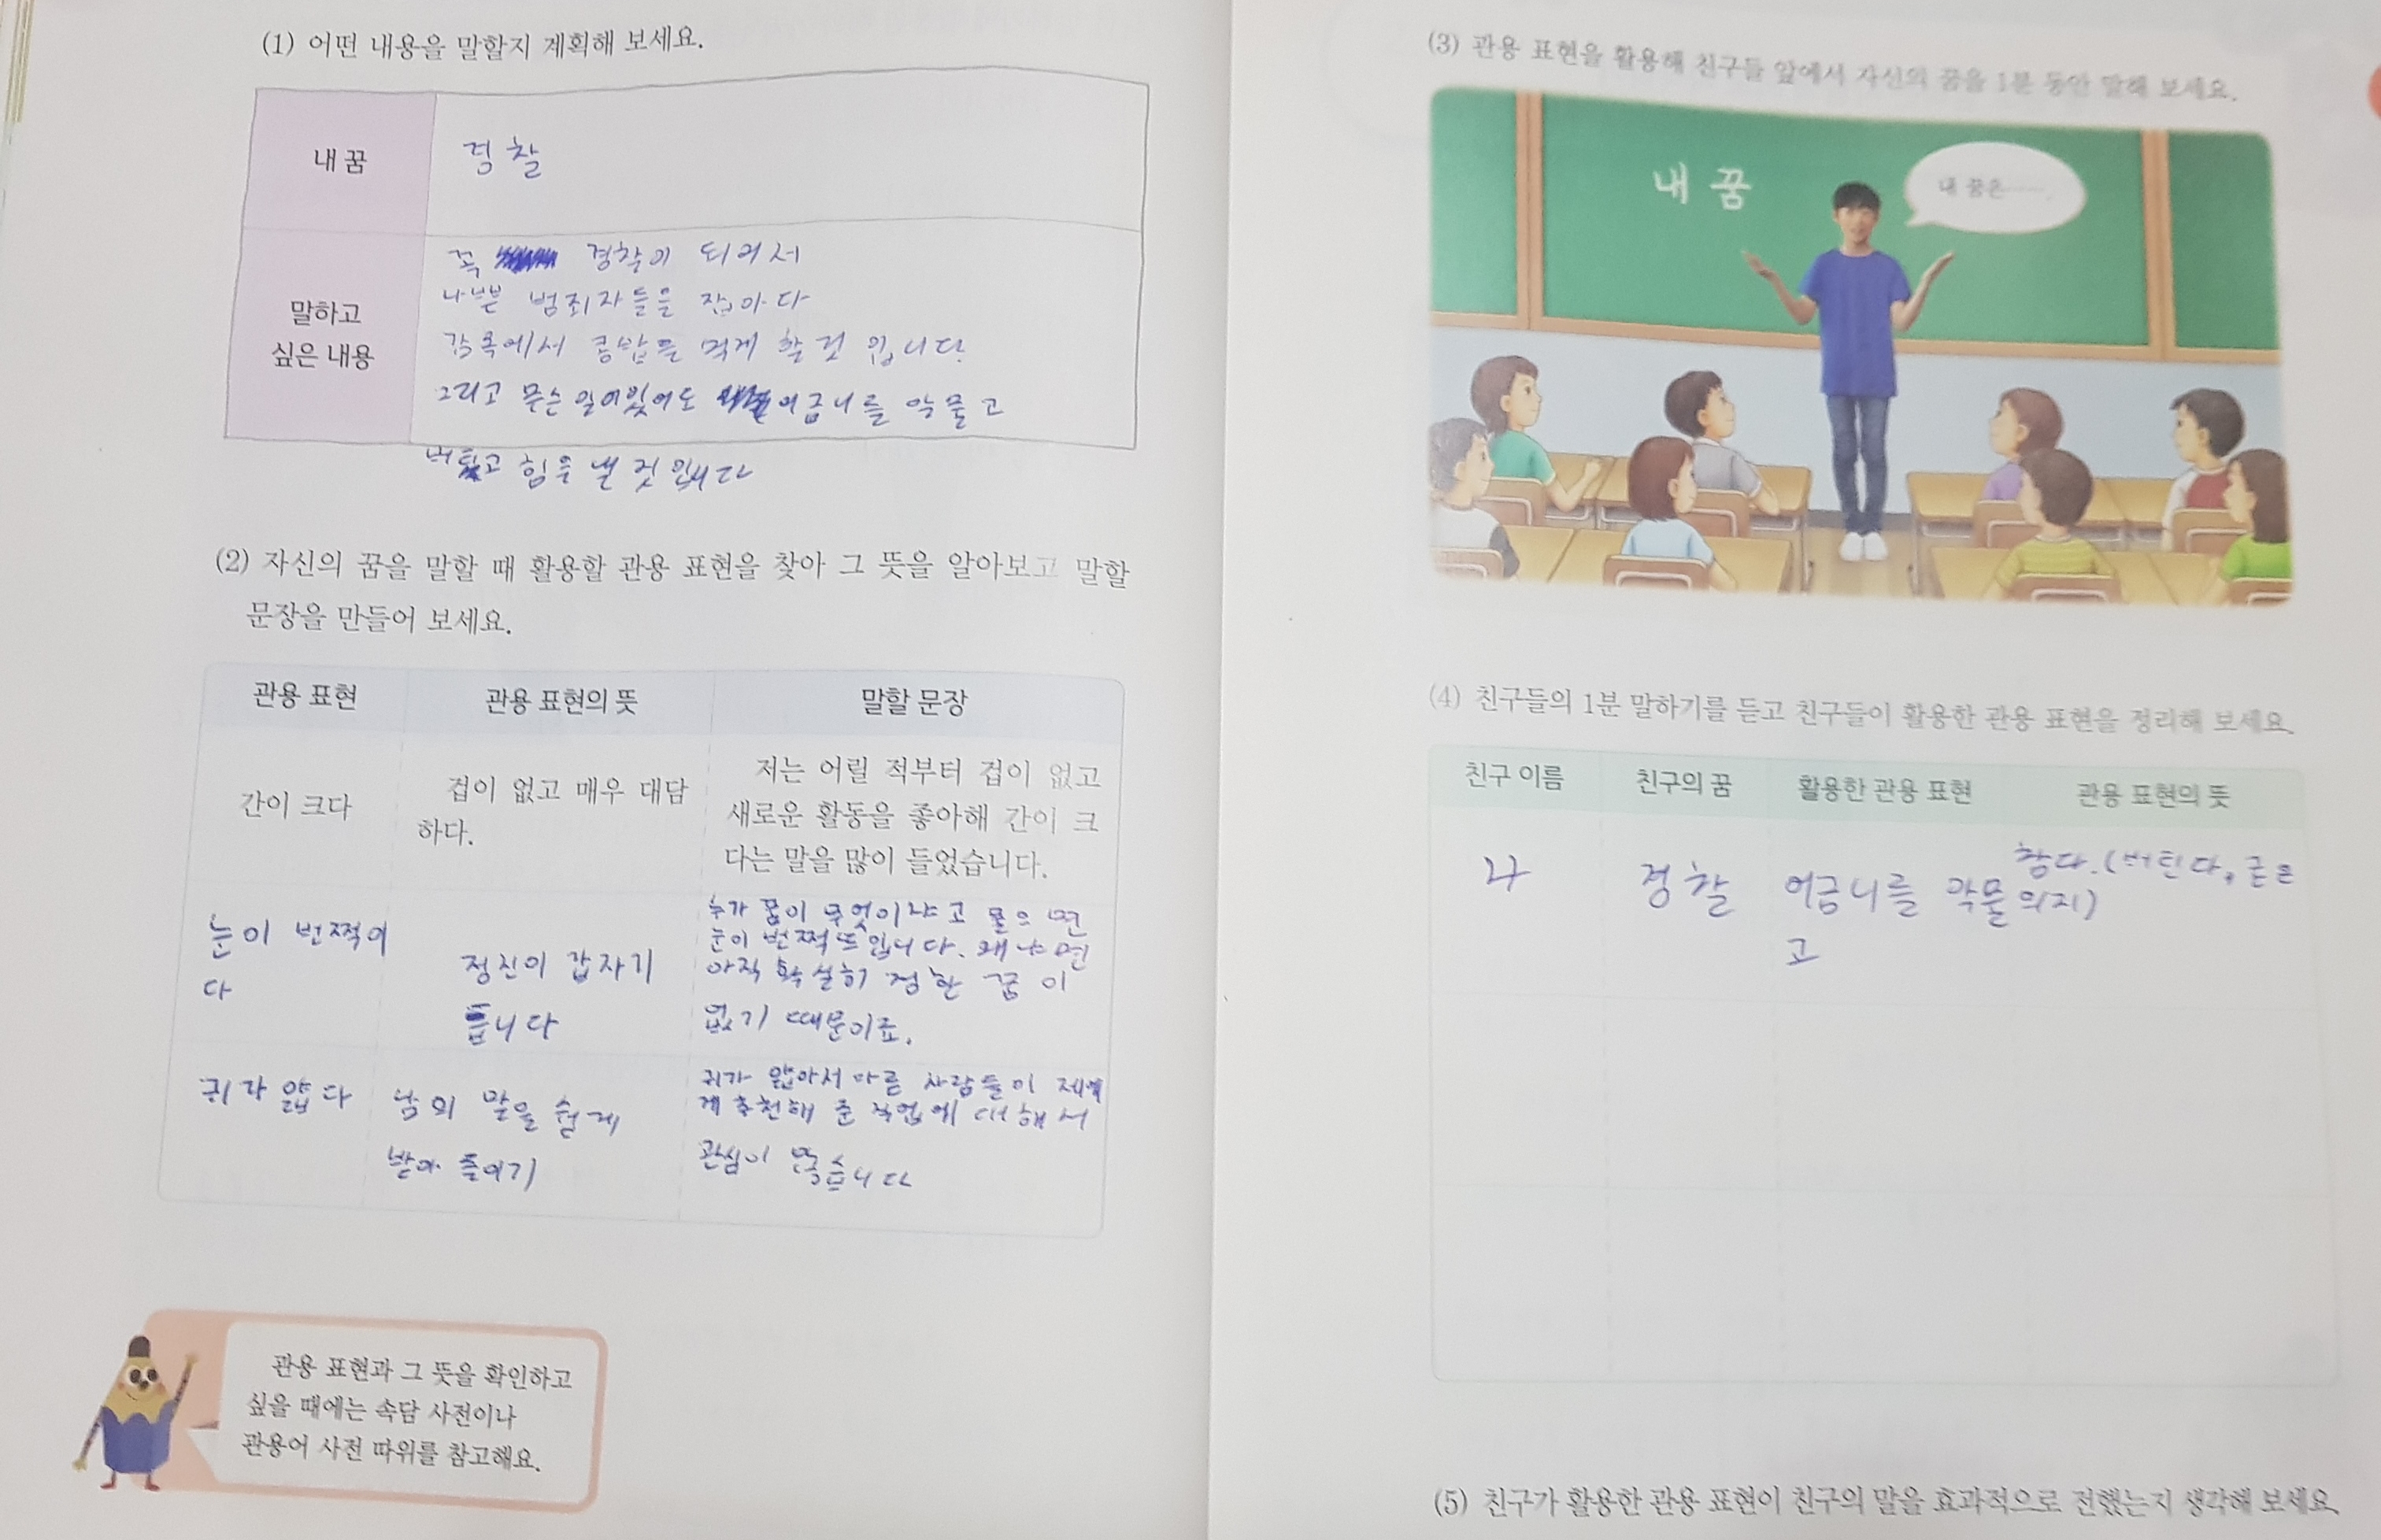 (1) 어떤 내용을 말할지 계획해 보세요.
내 꿈
경찰
말하고
싶은 내용
꼭 경찰이 되어서
나쁜 범죄자들을 잡아다
감옥에서 콩밥을 먹게 할 것 입니다.
그리고 무슨 일이있어도 어금니를 악물고
버티고 힘을 낼 것 입니다
(2) 자신의 꿈을 말할 때 활용할 관용 표현을 찾아 그 뜻을 알아보고 말할
문장을 만들어 보세요.
관용 표현
관용 표현의 뜻
말할 문장
간이 크다
겁이 없고 매우 대담
하다.
저는 어릴 적부터 겁이 없고
새로운 활동을 좋아해 간이 크
다는 말을 많이 들었습니다.
눈이 번쩍이
다
정신이 갑자기
듭니다
누가 꿈이 무엇이냐고 물으면
눈이 번쩍 뜨입니다. 왜냐면
아직 확실히 정한 꿈이
없기 때문이죠.
귀가 얇다
남의 말을 쉽게
받아 들이기
귀가 얇아서 다른 사람들이 제게
추천해 준 직업에 대해서
관심이 많습니다
관용 표현과 그 뜻을 확인하고
싶을 때에는 속담 사전이나
관용어 사전 따위를 참고해요.
(3) 관용 표현을 활용해 친구들 앞에서 자신의 꿈을 1분 동안 말해 보세요.
내 꿈
내 꿈은…….
(4) 친구들의 1분 말하기를 듣고 친구들이 활용한 관용 표현을 정리해 보세요.
친구 이름
친구의 꿈
활용한 관용 표현
관용 표현의 뜻
나
경찰
어금니를 악물
고
참다. (버틴다, 굳은
의지)
(5) 친구가 활용한 관용 표현이 친구의 말을 효과적으로 전했는지 생각해 보세요.